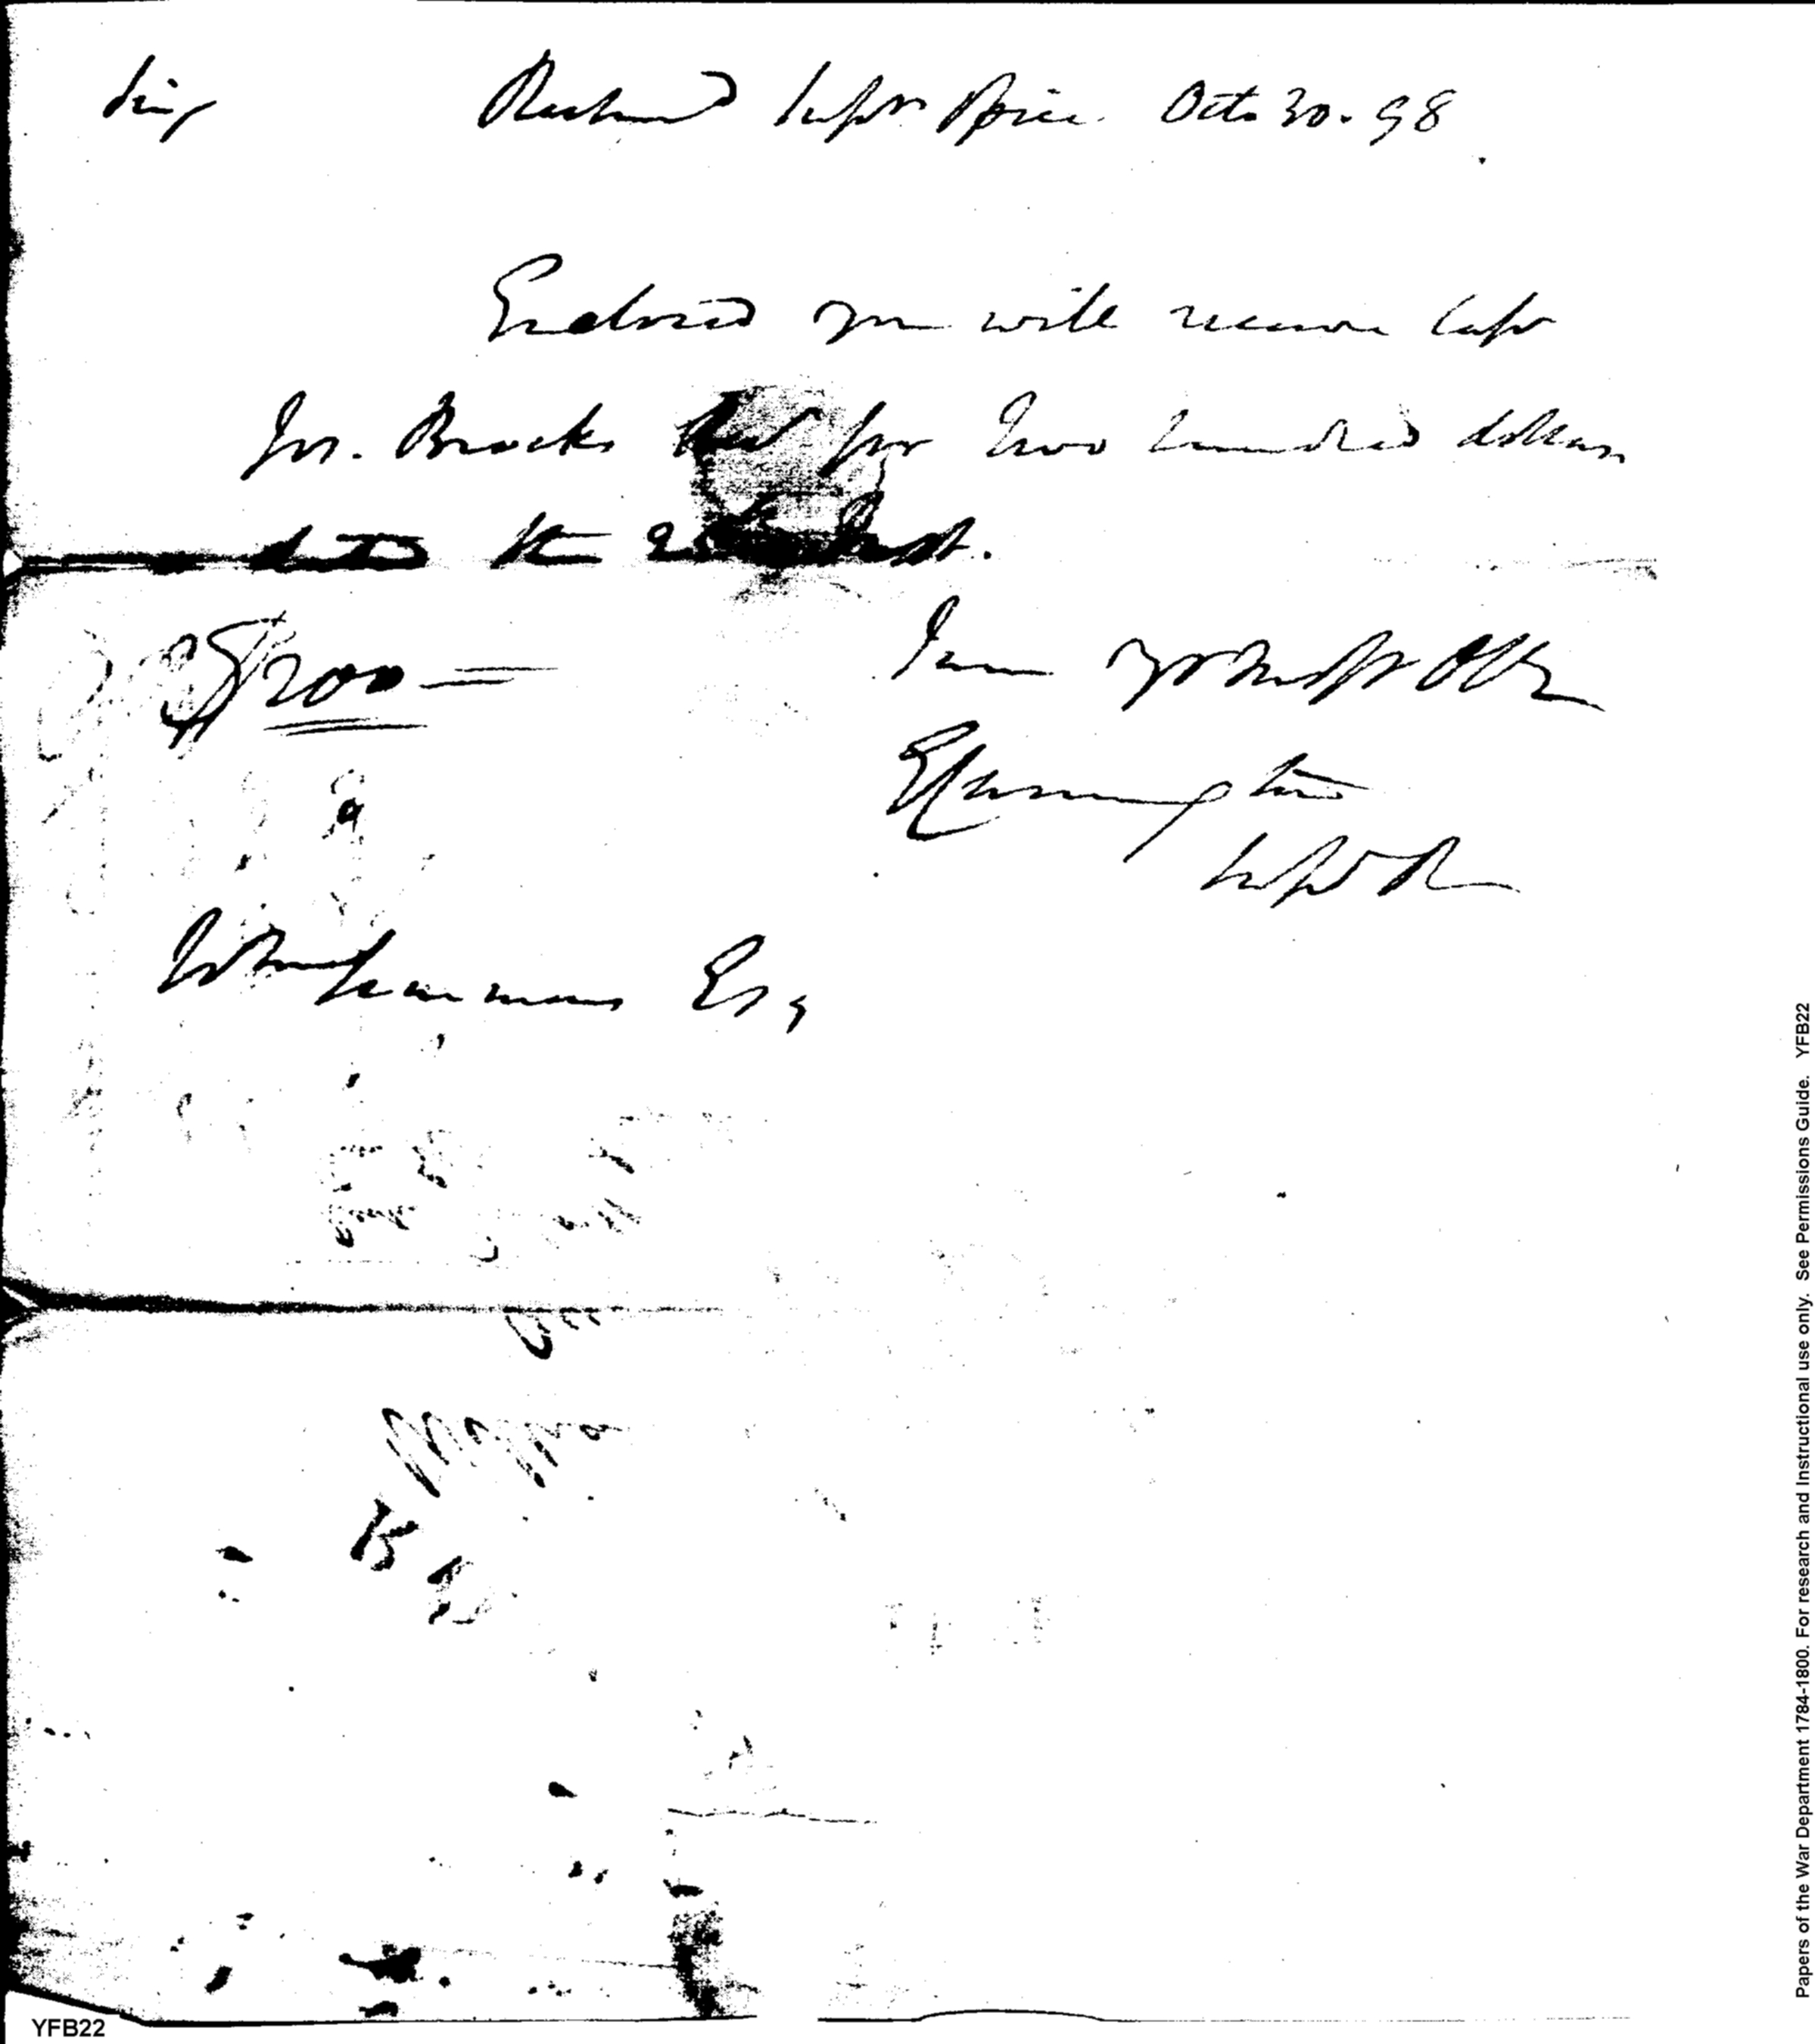 Sir, Richmond Supvrs Office Oct. 30. 98
Enclosed you will receive Capt
Jos. Brocks Rect for Two hundred dollars
dated the inst.
$200 I am yr Most Obt
E Carrington
Wm Simmons Esq
Papers of the War Department 1784-1800. For research and Instructional use only. See Permissions Guide. YFB22
YFB22